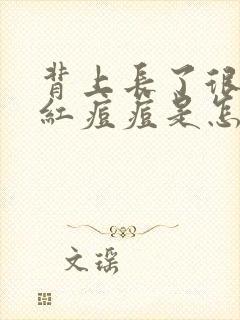 背上長了很
紅痘痘是怎
文琛